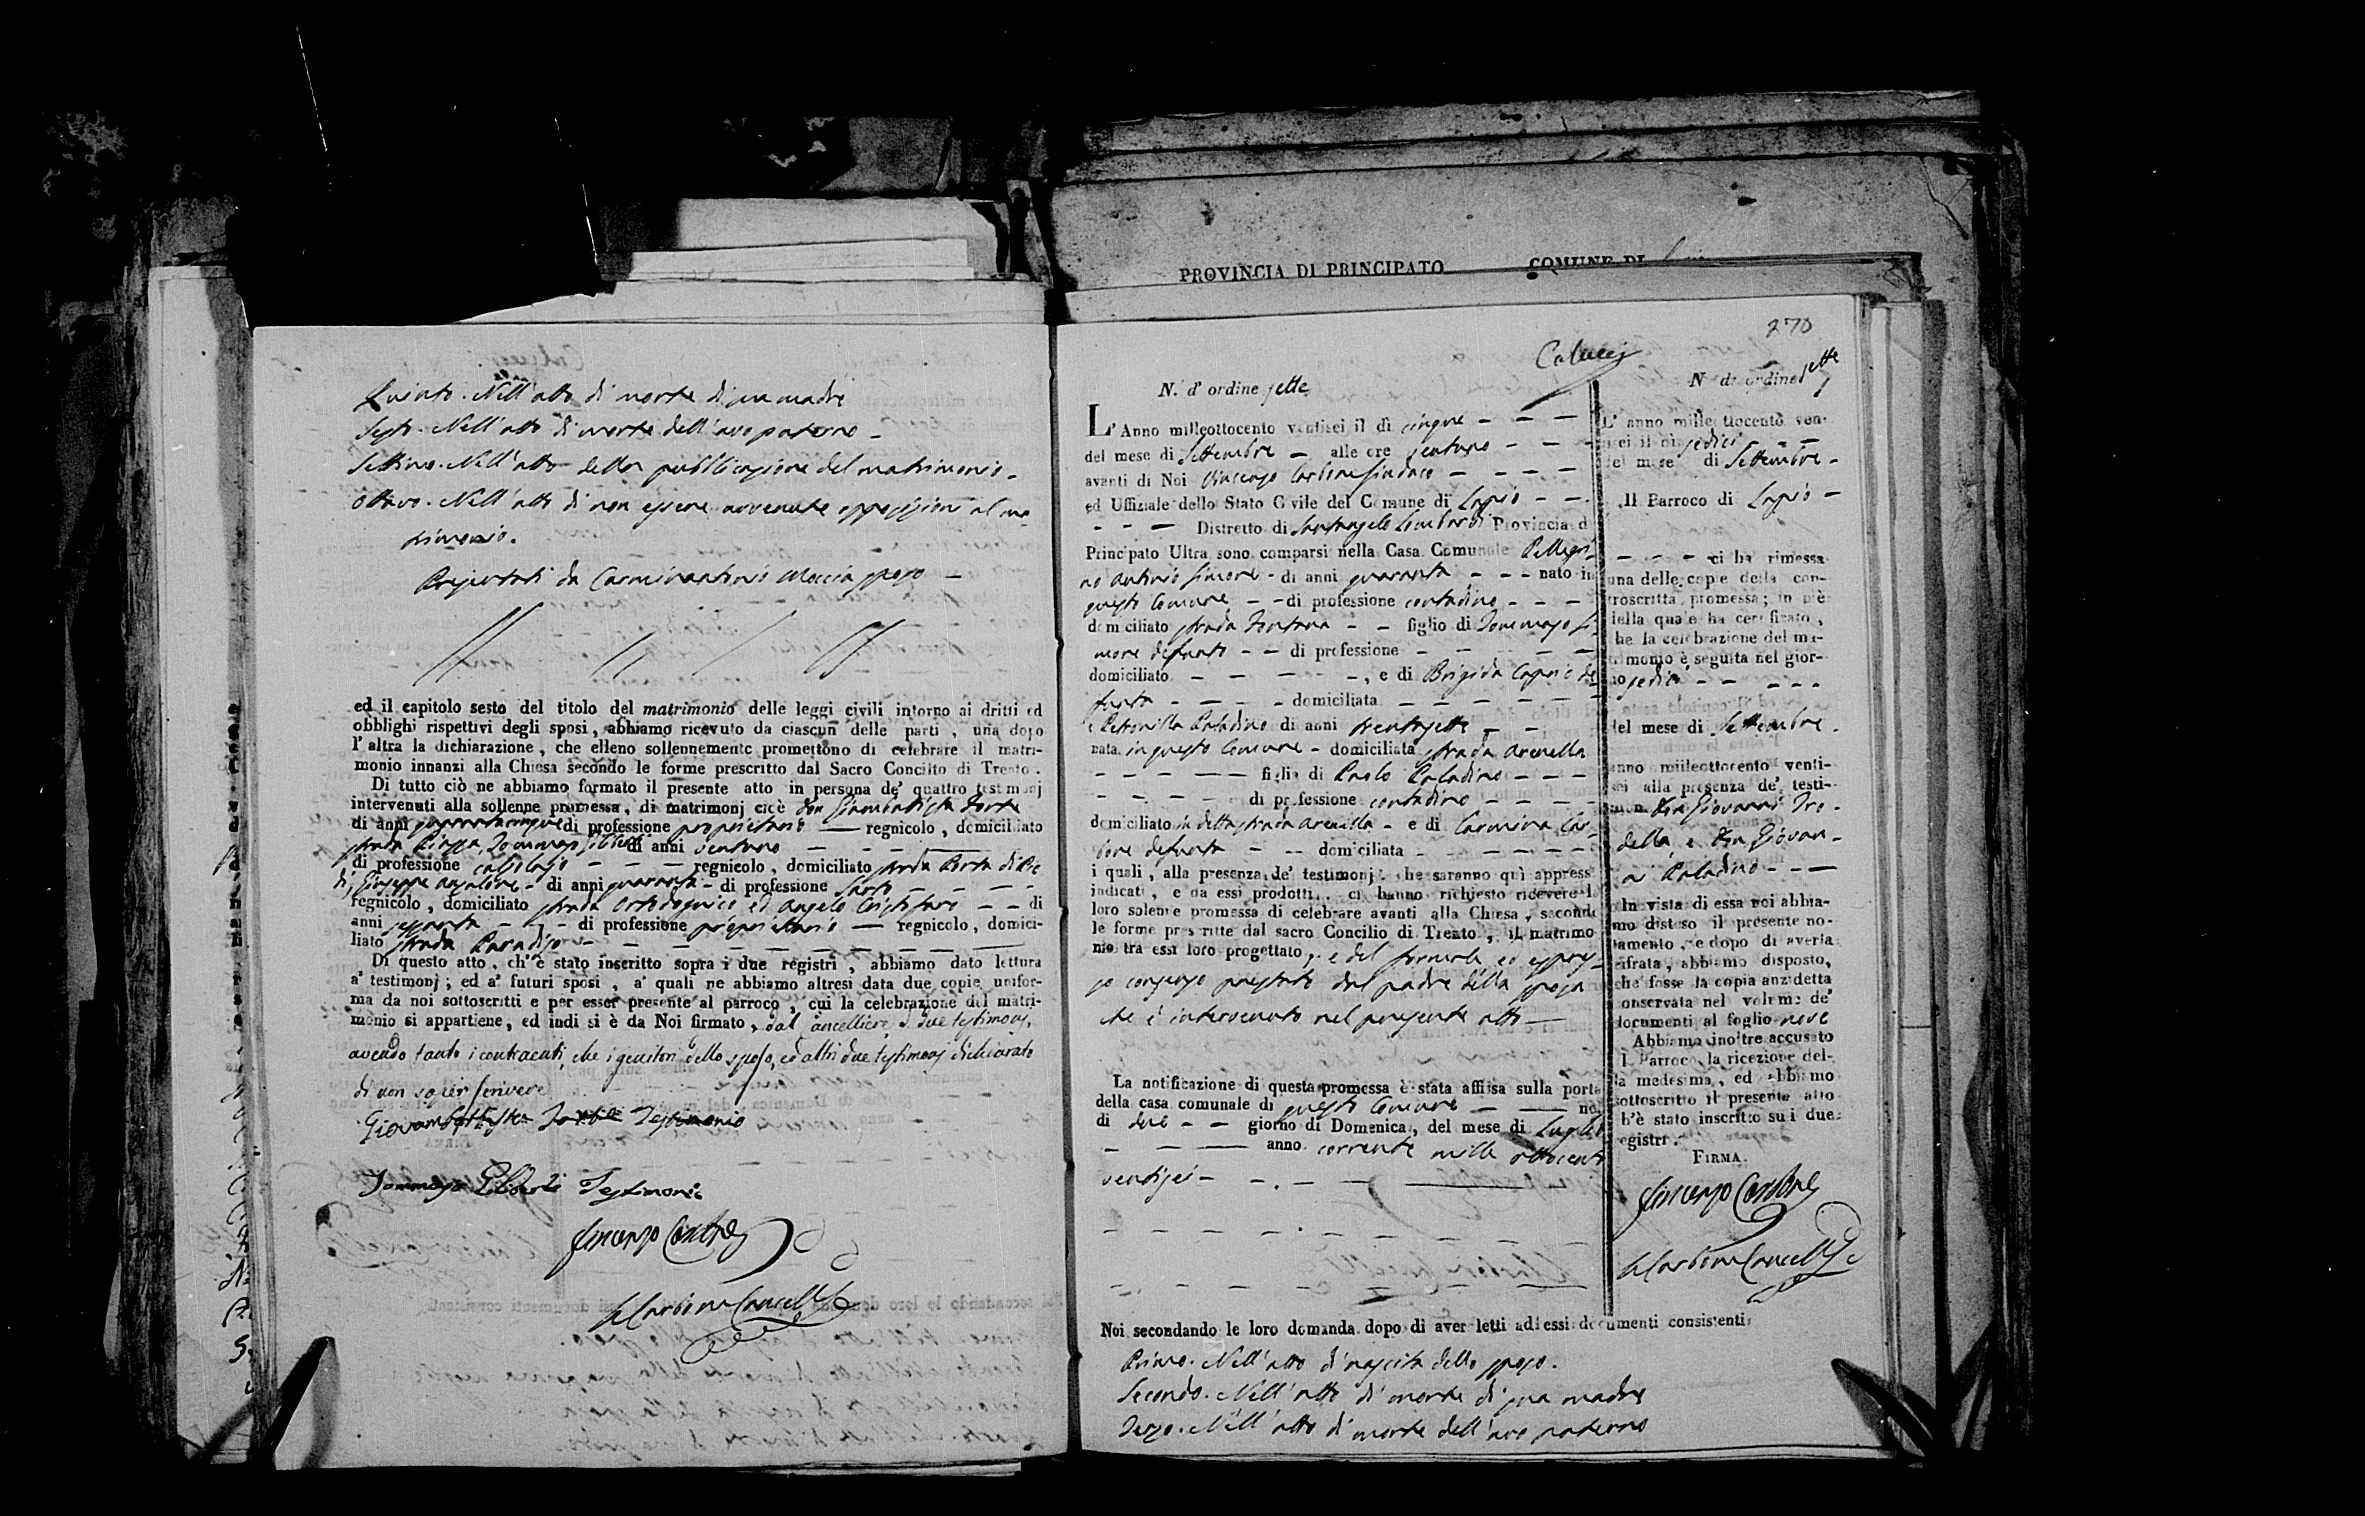 Quinto. Nell'atto di morte di sua madre
Sesto. Nell'atto di morte dell'avo paterno -
Settimo. Nell'atto della pubblicazione del matrimonio -
Ottavo. Nell'atto di non essere avvenute opposizioni al ma
trimonio.
Presentati da Carminantonio Moccia sposo -
ed il capitolo sesto del titolo del matrimonio delle leggi civili intorno ai dritti ed
obblighi rispettivi degli sposi, abbiamo ricevuto da ciascun delle parti, una dopo
l'altra la dichiarazione, che elleno sollennemente promettono di celebrare il matri-
monio innanzi alla Chiesa secondo le forme prescritto dal Sacro Concilto di Trento.
Di tutto ciò ne abbiamo formato il presente atto in persona de' quattro testimonj
intervenuti alla sollenne promessa, di matrimonj cioè Don Giambatista Forte
di anni quarantacinque di professione proprietario — regnicolo, domiciliato
strada Piazza, Tommaso di anni ventuno - - -
di professione calzolajo - - - regnicolo, domiciliato strada Porta di Pie
di, Giuseppe - di anni quaranta - di professione Sarto - - - -
regnicolo, domiciliato strada ed Angelo Cristofaro - - di
anni sessanta - - - di professione proprietario — regnicolo, domici-
liato strada Paradiso - - - - -
Di questo atto, ch'è stato inscritto sopra i due registri, abbiamo dato lettura
a' testimonj; ed a' futuri sposi, a' quali ne abbiamo altresì data due copie unifor-
ma da noi sottoscritti e per esser presente al parroco, cui la celebrazione del matri-
monio si appartiene, ed indi si è da Noi firmato, dal Cancelliere, e due testimonj,
avendo tanto i contraenti, che i genitori dello sposo, ed altri due testimonj dichiarato
di non saper scrivere
Giovambattista Forte Testimonio
Tommaso Testimonio
Vincenzo Carbone
Carbone Cancell.
PROVINCIA DI PRINCIPATO COMUNE DI
270
Colucci
N. d'ordine sette
L'Anno milleottocento ventisei il dì cinque - - -
del mese di Settembre - alle ore ventuno - - -
avanti di Noi Vincenzo Carbone Sindaco - - - -
ed Uffiziale dello Stato Civile del Comune di Lapio - -
- - - Distretto di Santangelo Lombardi Provincia d
Principato Ultra sono comparsi nella Casa Comunale Pellegri-
no Antonio Simone - di anni quaranta - - - nato in
questo Comune - - di professione contadino - - -
domiciliato strada Fontana - - figlio di Tommaso Si-
mone defunto - - di professione - - - -
domiciliato - - - - -, e di Brigida Caprio de
funta - - - - domiciliata - - - - -
e Petronilla Paladino di anni trentasette - -
nata in questo Comune - domiciliata strada Arenella
- - - - figlia di Paolo Paladino - - -
- - - - di professione contadino - - - -
domiciliato in detta strada Arenella - e di Carmina Car-
bone defunta - - domiciliata - - - - -
i quali, alla presenza de' testimonj che saranno qui appress
indicati, e da essi prodotti, ci hanno richiesto ricevere l
loro solenne promessa di celebrare avanti alla Chiesa, secondo
le forme prescritte dal sacro Concilio di Trento, il matrimo
nio tra essi loro progettato, e del formale ed espres-
so consenso prestato dal padre della sposa
che è intervenuto nel presente atto —
La notificazione di questa promessa è stata affissa sulla porta
della casa comunale di questo Comune - — nel
di due - - giorno di Domenica, del mese di Luglio
- - — anno corrente mille ottocento
ventisei - - . - - —
N. d'ordine sette
L'anno mille ttocento ven-
isei il dì sedici - -
del mese di Settembre -
Il Parroco di Lapio -
- - - ci ha rimessa
una delle copie della con-
troscritta promessa; in piè
della quale ha certificato,
che la celebrazione del ma-
trimonio è seguita nel gior-
no sedici - - - - -
del mese di Settembre -
anno milleottocento venti-
sei alla presenza de' testi-
moni Don Giovanni Tro-
della, e Don Giovan-
ni Paladino - - -
In vista di essa noi abbia-
mo disteso il presente no-
tamento, e dopo di averla
cifrata, abbiamo disposto,
che fosse la copia anzidetta
conservata nel volume de'
documenti al foglio nove
Abbiamo inoltre accusato
l Parroco la ricezione del-
la medesima, ed abbiamo
sottoscritto il presente atto
ch'è stato inscritto sui due
registri.
FIRMA.
Vincenzo Carbone
Carbone Cancell.
Noi secondando le loro domanda dopo di aver letti ad essi documenti consistenti
Primo. Nell'atto di nascita dello sposo.
Secondo. Nell'atto di morte di sua madre
Terzo. Nell'atto di morte dell'avo paterno